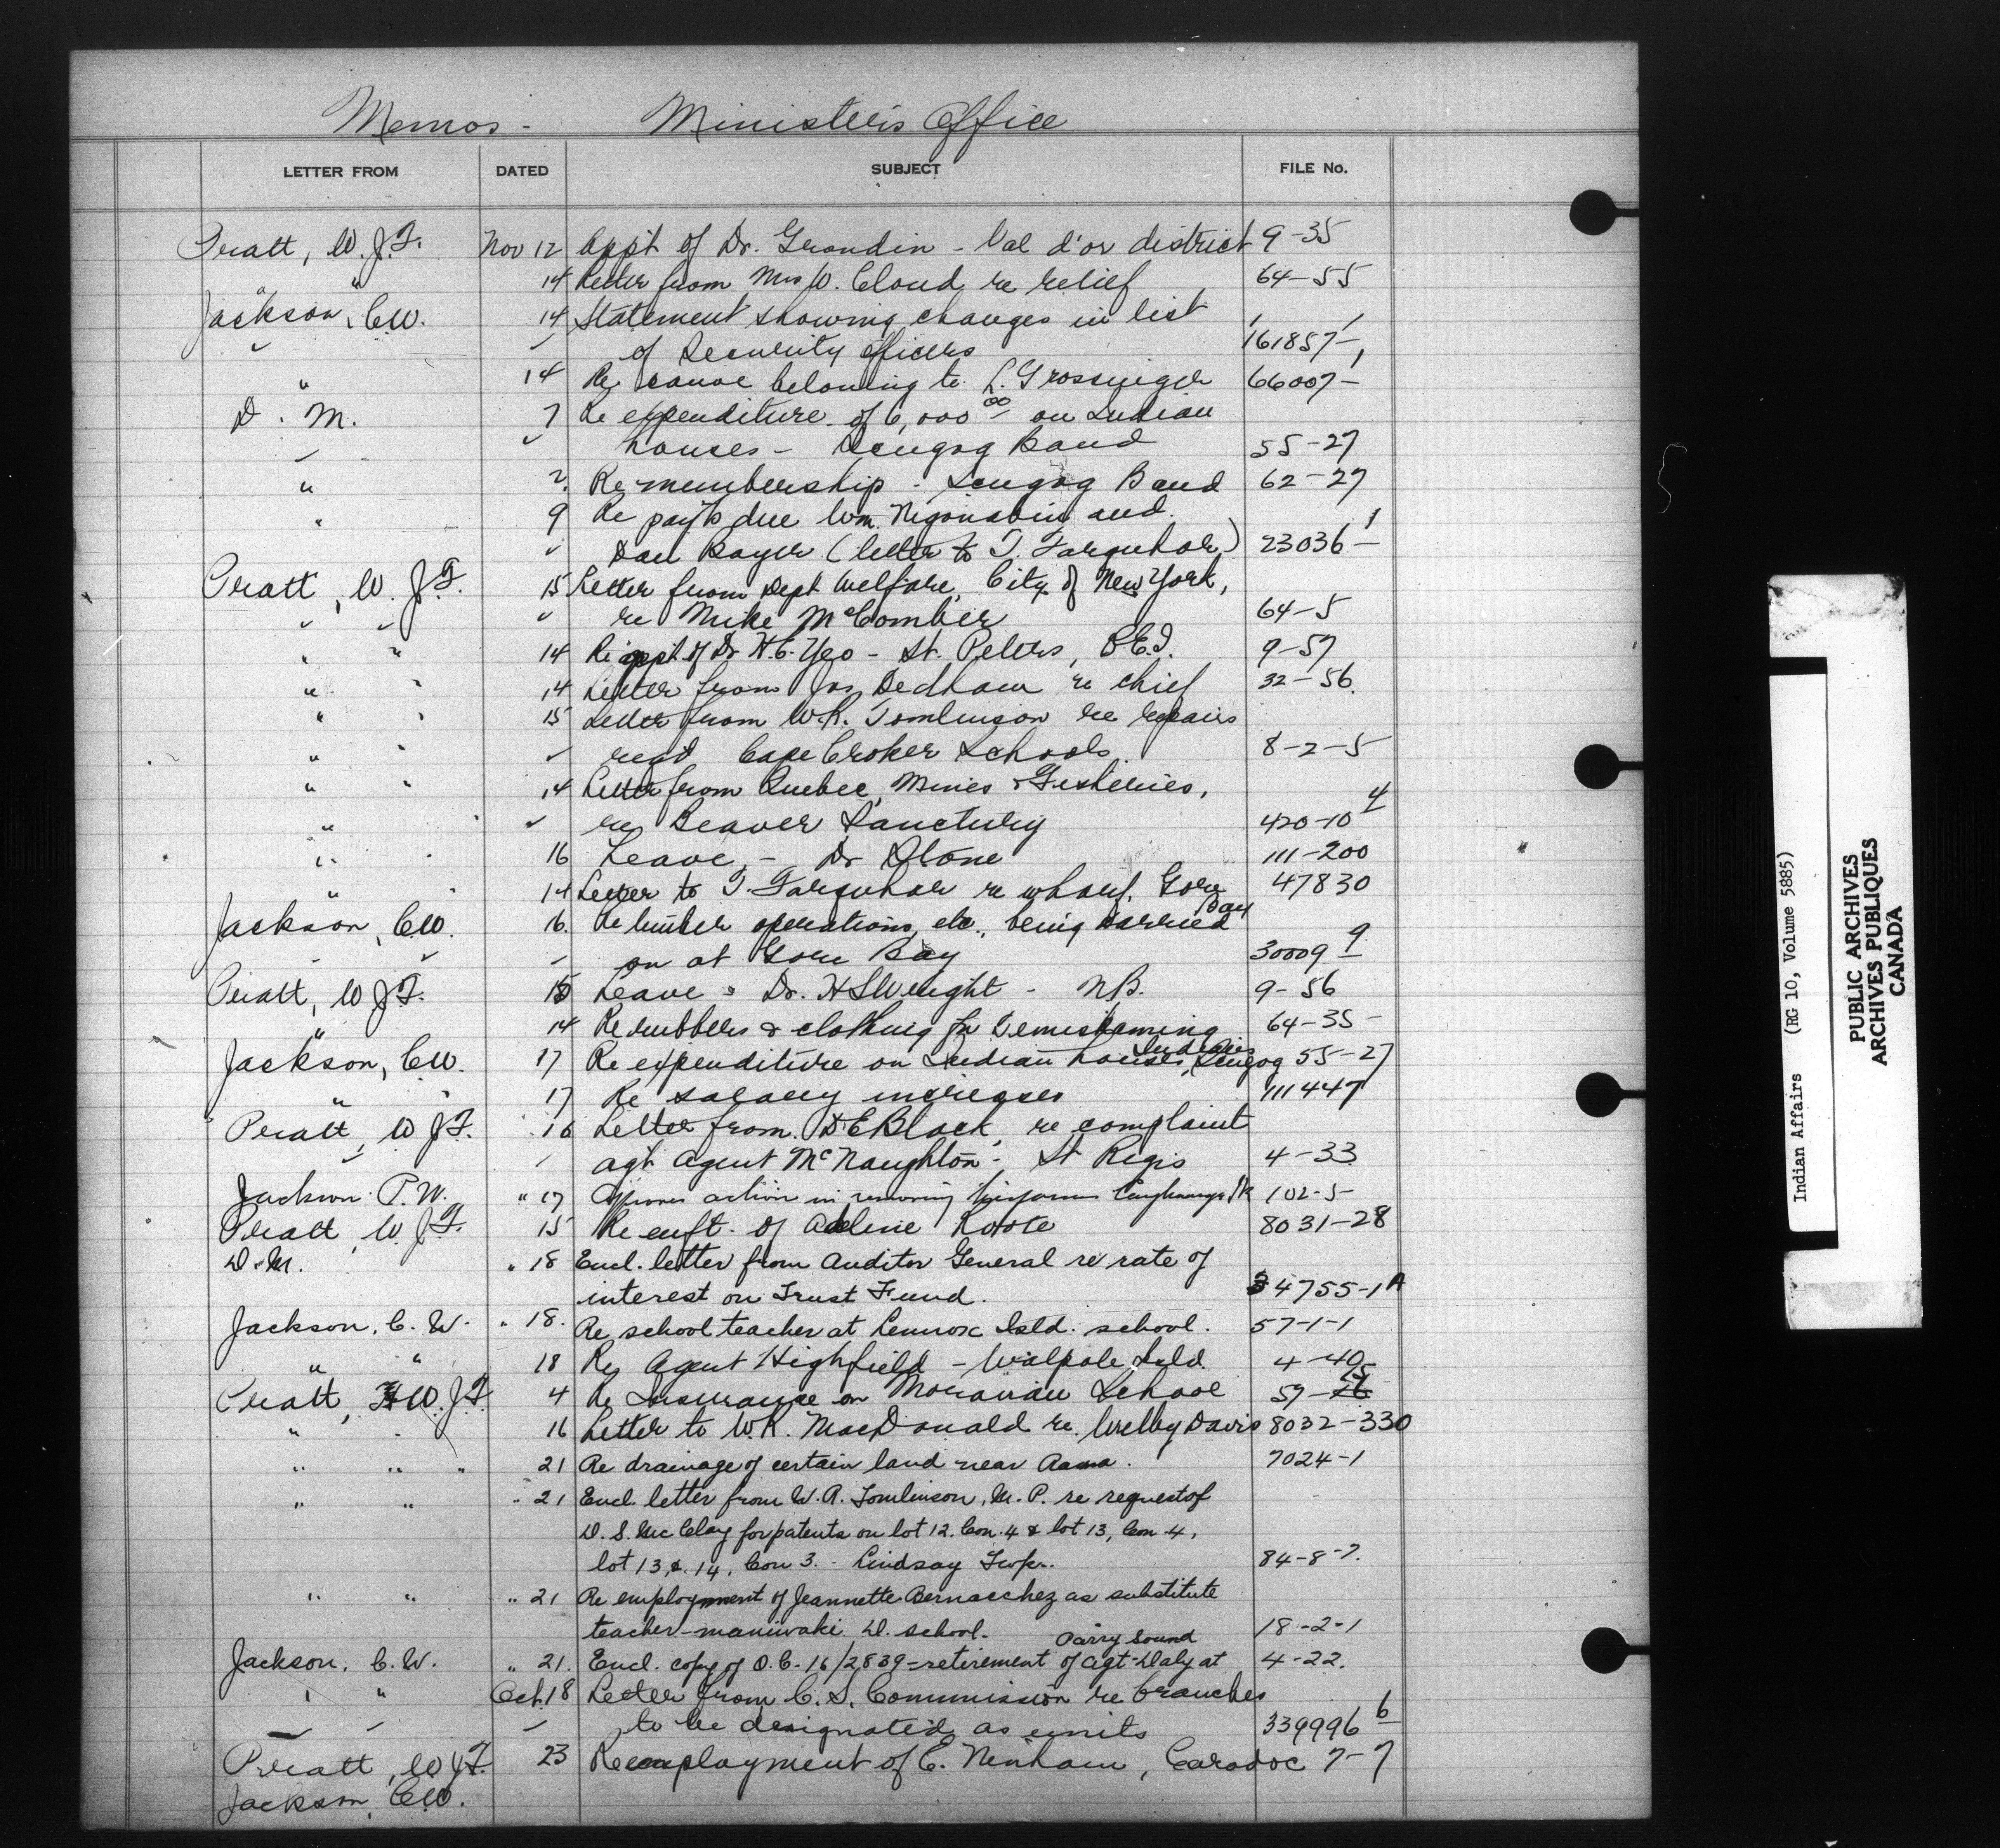 Memos - Minister's Office
LETTER FROM DATED SUBJECT FILE No.
Pratt, W.J.F. Nov 12 Appt of Dr. Grondin - Val d'or district 9-35
" " 14 Letter from Mrs W. Cloud re relief 64-55
Jackson, C.W. 14 Statement showing changes in list
of Security officers 161857-1
" 14 Re canoe belonging to L. Grossinger 66007-
D. M. 7 Re expenditure of 6,000 00 on Indian
houses - Scugog Band 55-27
" 2 Re membership - Scugog Band 62-27
" 9 Re pay'ts due Wm. and
Dan (letter to T. Farquhar) 23036-1
Pratt, W.J.F. 15 Letter from Dept Welfare, City of New York,
re Mike McComber 64-5
" " 14 Re appt. of Dr H.C. Yeo - St. Peters, P.E.I. 9-57
" " 14 Letter from Jas Dedham re chief 32-56
" " 15 Letter from W.R. Tomlinson re repairs
" " reqd Cape Croker Schools 8-2-5
" " 14 Letter from Quebec, Mines & Fisheries,
" " re Beaver Sanctury 420-10 4
" " 16 Leave, - Dr Stone 111-200
" " 14 Letter to T. Farquhar re wharf, Gore Bay 47830
Jackson, C.W. 16. Re timber operations, etc., being carried
on at Gore Bay 30009 9
Pratt, W.J.F. 15 Leave - Dr. H S Wright - N.B. 9-56
" 14 Re rubbers & clothing for Temiskaming Indians 64-35-
Jackson, C.W. 17 Re expenditure on Indian houses, Scugog 55-27
" 17 Re salary increases 111447
Pratt, W.J.F. 16 Letter from D.E Black, re complaint
agt Agent McNaughton - St Regis 4-33
Jackson P.W. " 17 Approves action in removing 102-5-
Pratt, W.J.F. 15 Re enft. of Adeline Koote 8031-28
D.M. " 18 Encl. letter from Auditor General re rate of
interest on Trust Fund. 34755-1A
Jackson, C.W. " 18. Re school teacher at Lennox Isld. school. 57-1-1
" " 18 Re Agent Highfield - Walpole Isld. 4-40
Pratt, W.J.F. 4 Re Insurance on Moravian School 59-15
" " 16 Letter to W.R. MacDonald re. Welby Davis 8032-330
" " " 21 Re drainage of certain land near 7024-1
" " " 21 Encl. letter from W.R. Tomlinson, M.P. re request of
D.S. McClay for patents on lot 12. Con. 4 & lot 13, Con 4,
lot 13, & 14, Con 3. - Lindsay Twp. 84-8-7.
" " " 21 Re employment of Jeannette Bernatchez as substitute
teacher - maniwaki D. school. 18-2-1
Jackson, C.W. " 21. Encl. copy of O.C. 16/2839 - retirement of Agt-Daly at Parry Sound 4-22.
" " Oct. 18 Letter from C.S. Commission re branches
to be designated as units 339996 6
Pratt, W.J.F. 23 Re employment of E. Ninham, Caradoc 7-7
Jackson, C.W.
Indian Affairs (RG 10, Volume 5885)
PUBLIC ARCHIVES
ARCHIVES PUBLIQUES
CANADA